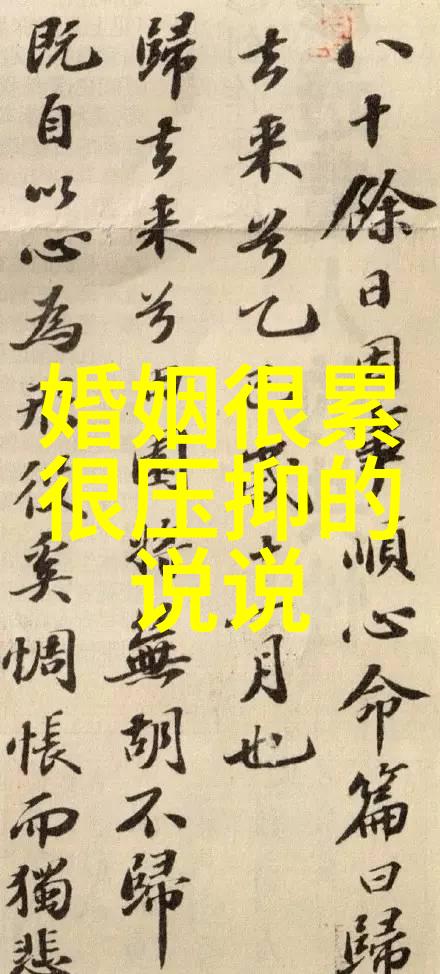 八十餘日因事順心命篇曰歸
去来兮乙歲月也
歸去来兮園無胡不歸
既自以心為形役奚惆悵而獨悲
婚姻很累
很压抑的
说说